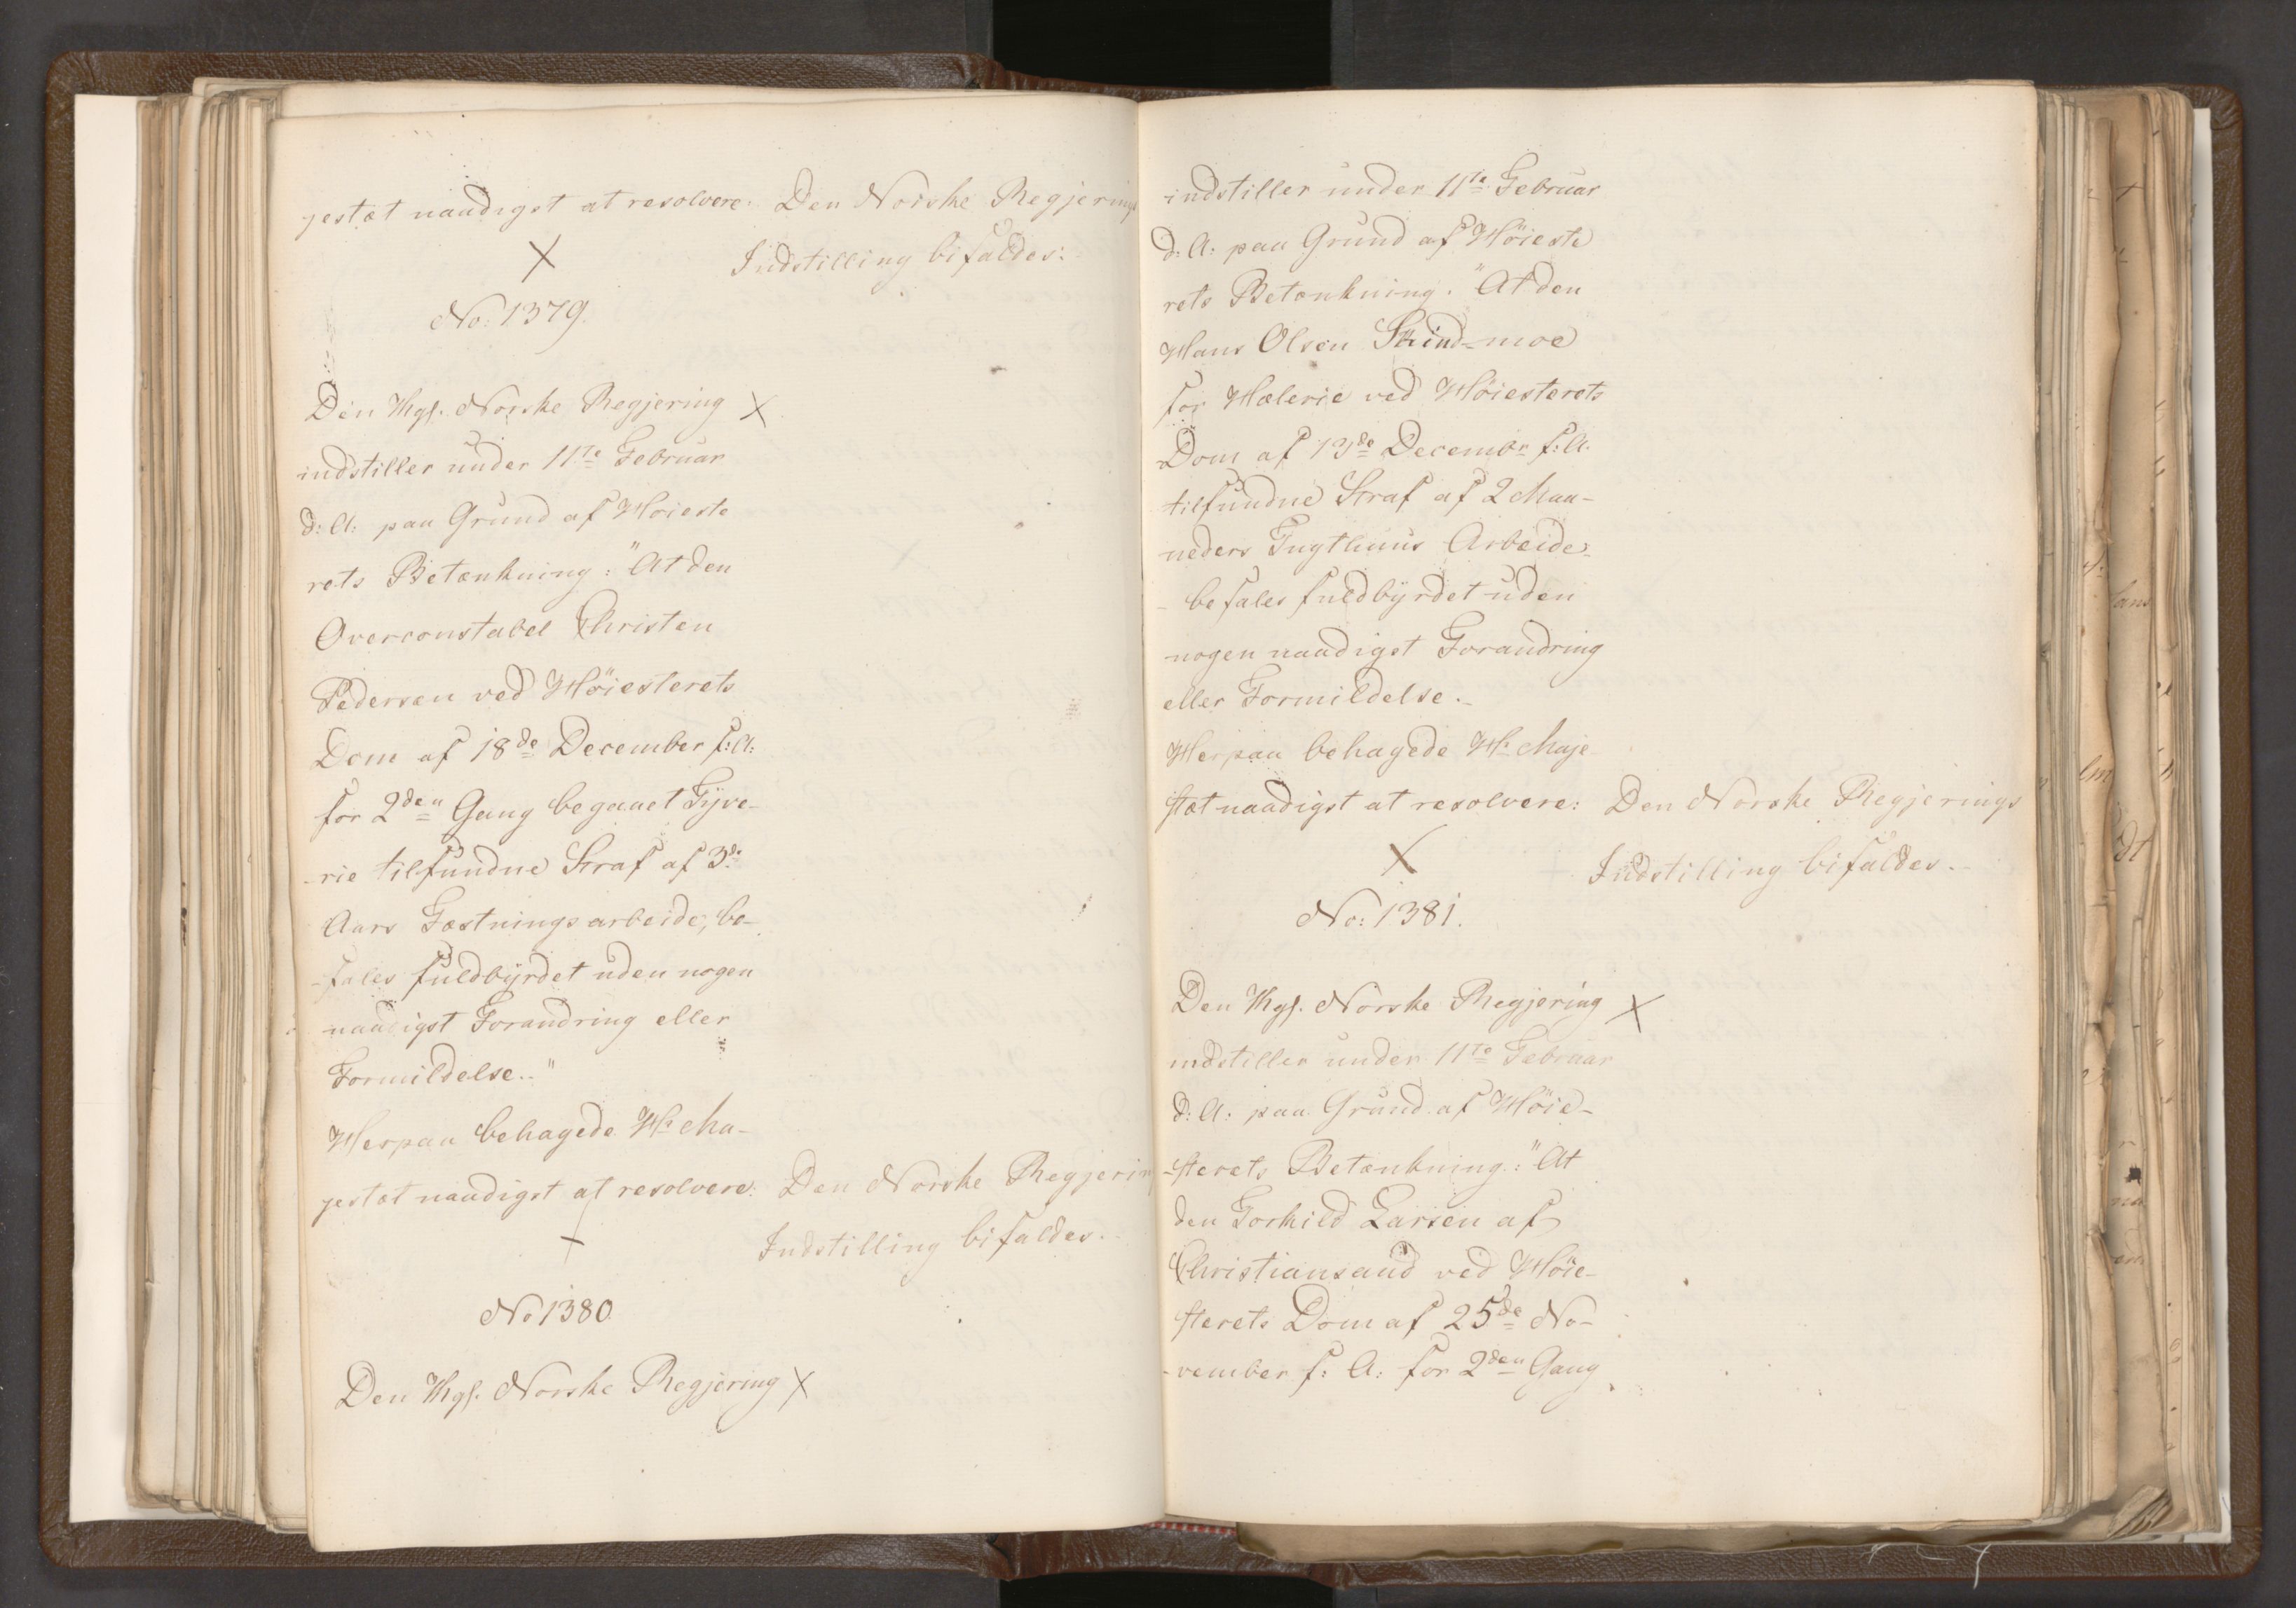 jestæt naadigst at resolvere: Den Norske Regjerings
X
Indstilling bifaldes:
No: 1379.
Den Kgl. Norske Regjering X
indstiller under 11te Februar
d: A: paa Grund af Høieste
rets Betænkning: "At den
Overconstabel Christen
Pedersen ved Höiesterets
Dom af 18de December f: A:
for 2den Gang begaaet Tyve-
-rie tilfundne Straf af 3de
Aars Fæstningsarbeide, be-
-fales fuldbyrdet uden nogen
naadigst Forandring eller
Formildelse.."
Herpaa behagede Hs Ma-
jestæt naadigst at resolvere: Den Norske Regjering
X
Indstilling bifaldes.
No 1380
Den Kgl. Norske Regjering X
indstiller under 11te Februar
d: A: paa Grund af Höieste
rets Betænkning. "At den
Hans Olsen Skind-moe
for Hælerie ved Höiesterets
Dom af 13de Decembr f: A.
tilfundne Straf af 2 Maa-
neders Tugthuus Arbeide
- befales fuldbyrdet uden
nogen naadigst Forandring
eller Formildelse.-
Herpaa behagede Hs Maje
stæt naadigst at resolvere: Den Norske Regjerings
X
Indstilling bifaldes.-
No: 1381.
Den Kgl. Norske Regjering X
indstiller under 11te Februar
d: A: paa Grund af Höie-
-sterets Betænkning: "At
den Torkild Larsen af
Christiansand ved Höie-
sterets Dom af 25de No-
-vember f: A: for 2den Gang